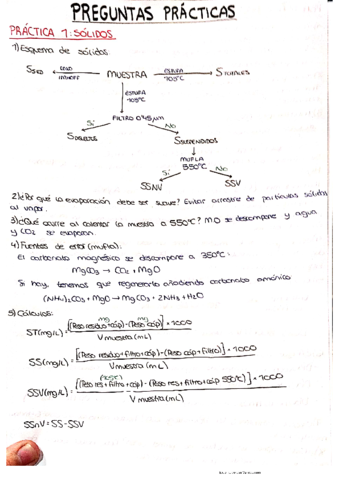 PREGUNTAS PRÁCTICAS
PRÁCTICA 1: SÓLIDOS
1) Esquema de sólidos:
SSED ← CONO IMHOFF MUESTRA ESTUFA 105ºC → STOTALES
ESTUFA
105ºC
FILTRO 0'45µm
Sí No
SDISUELTOS SSUSPENDIDOS
MUFLA
550ºC
SSNV SSV
2) ¿Por qué la evaporación debe ser suave? Evitar arrastre de partículas sólidas
al vapor.
3) ¿Qué ocurre al calentar la muestra a 550ºC? MO se descompone y agua
y CO2 se evaporan.
4) Fuentes de error (mufla):
El carbonato magnésico se descompone a 350ºC:
MgCO3 → CO2 + MgO
Si hay, tenemos que regenerarlo añadiendo carbonato amónico
(NH4)2CO3 + MgO → MgCO3 + 2NH3 + H2O
5) Cálculos:
ST(mg/L) = [(Peso residuo + cáp) - (Peso cáp)] · 1000
V muestra (mL)
SS(mg/L) = [(Peso residuo + filtro + cáp) - (Peso cáp + filtro)] · 1000
V muestra (mL)
SSV(mg/L) = [(Peso res + filtro + cáp) - (Peso res + filtro + cáp 550ºC)] · 1000
V muestra (mL)
SSNV = SS - SSV